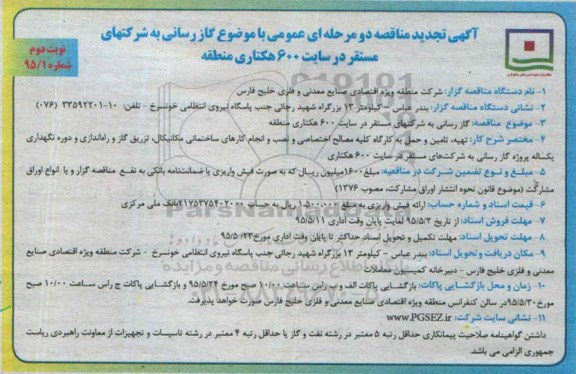 آگهی تجدید مناقصه دو مرحله ای عمومی با موضوع گاز رسانی به شرکتهای
مستقر در سایت ۶۰۰ هکتاری منطقه
نوبت دوم
شماره ۹۵/۱
۱- نام دستگاه مناقصه گزار: شرکت منطقه ویژه اقتصادی صنایع معدنی و فلزی خلیج فارس
۲- نشانی دستگاه مناقصه گزار: بندر عباس - کیلومتر ۱۳ بزرگراه شهید رجائی جنب پاسگاه نیروی انتظامی خونسرخ - تلفن: ۱۰-۳۳۵۹۲۲۰۱ (۰۷۶)
۳- موضوع مناقصه: گاز رسانی به شرکتهای مستقر در سایت ۶۰۰ هکتاری منطقه
۴- مختصر شرح کار: تهیه، تامین و حمل به کارگاه کلیه مصالح اختصاصی و نصب و انجام کارهای ساختمانی مکانیکال، تزریق گاز و راه‌اندازی و دوره نگهداری
یکساله پروژه گاز رسانی به شرکت‌های مستقر در سایت ۶۰۰ هکتاری
۵- مبلغ و نوع تضمین شرکت در مناقصه: مبلغ ۱۶۰۰ میلیون ریال که به صورت فیش واریزی یا ضمانتنامه بانکی به نفع مناقصه گزار و یا انواع اوراق
مشارکت (موضوع قانون نحوه انتشار اوراق مشارکت، مصوب ۱۳۷۶)
۶- قیمت اسناد و شماره حساب: ارائه فیش واریزی به مبلغ ۱,۵۰۰,۰۰۰ ریال به حساب ۲۱۷۵۳۷۵۴۰۲۰۰۰ بانک ملی مرکزی
۷- مهلت فروش اسناد: از تاریخ ۹۵/۵/۲ لغایت پایان وقت اداری ۹۵/۵/۱۱
۸- مهلت تحویل اسناد: مهلت تکمیل و تحویل اسناد حداکثر تا پایان وقت اداری مورخ ۹۵/۵/۲۳
۹- مکان دریافت و تحویل اسناد: بندر عباس - کیلومتر ۱۳ بزرگراه شهید رجائی جنب پاسگاه نیروی انتظامی خونسرخ - شرکت منطقه ویژه اقتصادی صنایع
معدنی و فلزی خلیج فارس - دبیرخانه کمیسیون معاملات
۱۰- زمان و محل بازگشایی پاکات: بازگشایی پاکات الف و ب راس ساعت ۱۰/۰۰ صبح مورخ ۹۵/۵/۲۴ و بازگشایی پاکات ج راس ساعت ۱۰/۰۰ صبح
مورخ ۹۵/۵/۳۰ در سالن کنفرانس منطقه ویژه اقتصادی صنایع معدنی و فلزی خلیج فارس صورت خواهد پذیرفت.
۱۱- نشانی سایت شرکت: www.PGSEZ.ir
داشتن گواهینامه صلاحیت پیمانکاری حداقل رتبه ۵ معتبر در رشته نفت و گاز یا حداقل رتبه ۴ معتبر در رشته تاسیسات و تجهیزات از معاونت راهبردی ریاست
جمهوری الزامی می باشد.